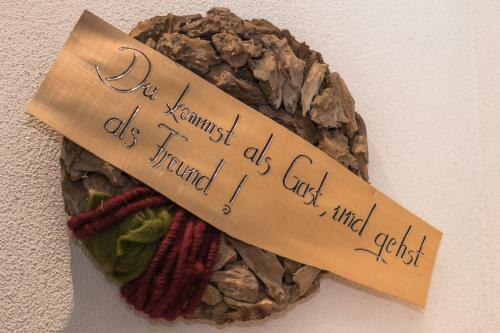 Du kommst als Gast, und gehst
als Freund !